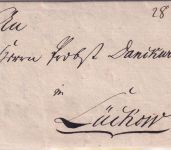 28
An
Herrn Probst Danckwer
in
Lückow